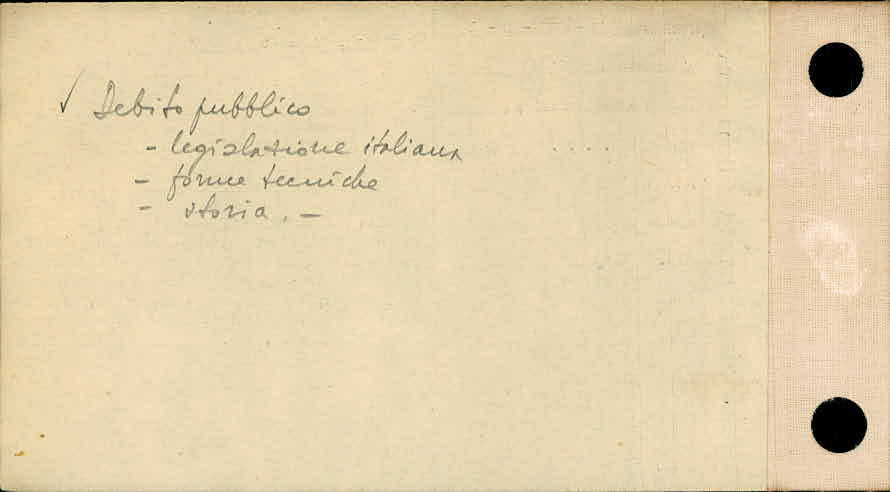 ✓ Debito pubblico
- legislazione italiana
- forme tecniche
- storia. -